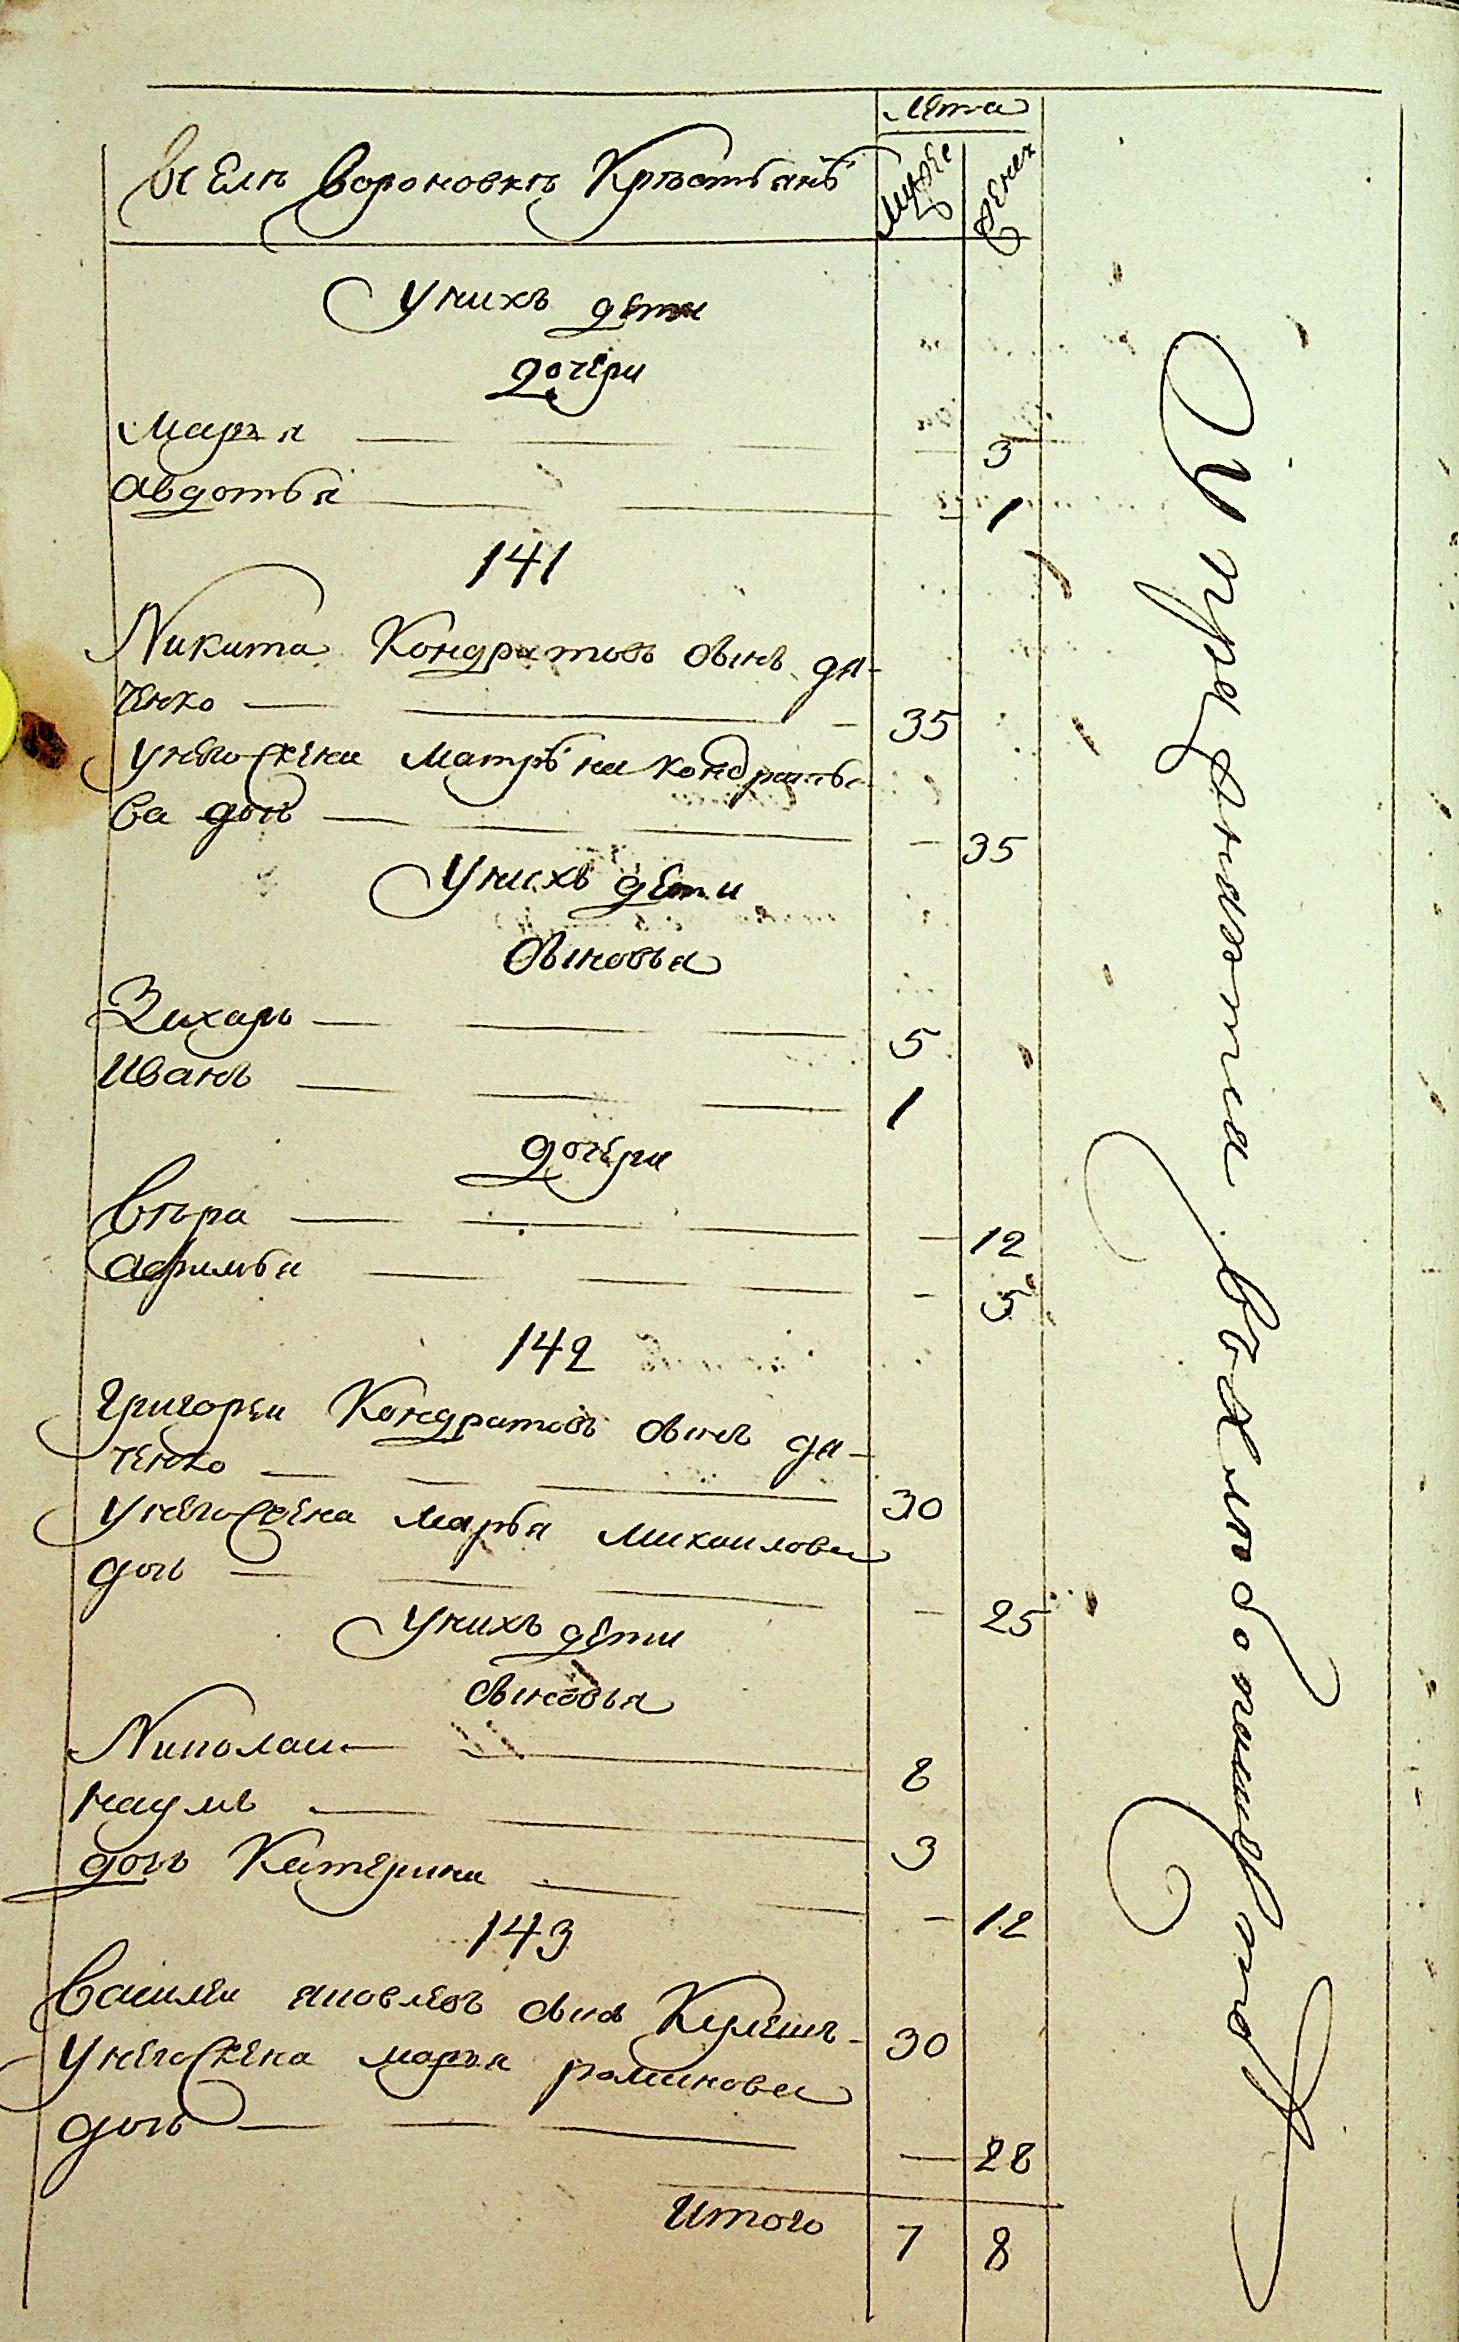 Лета
В селе Вороновке Крестьянъ
мужес
женск
У нихъ дети
дочери
Марья — 3
Авдотья — 1
141
Никита Кондратовъ сынъ дя-
ченко — 35
У него жена Матрена Кондратье-
ва дочь — 35
У нихъ дети
сыновья
Захаръ — 5
Иванъ — 1
дочери
Вера — 12
Афимья — 5
142
Григореи Кондратовъ сынъ дя-
ченко — 30
У него жена Марья Михаилова
дочь — 25
У нихъ дети
сыновья
Николаи — 8
Наумъ — 3
дочь Катерина — 12
143
Василеи Яковлевъ сынъ Кулешъ — 30
У него жена Марья Романова
дочь — 28
Итого 7 8